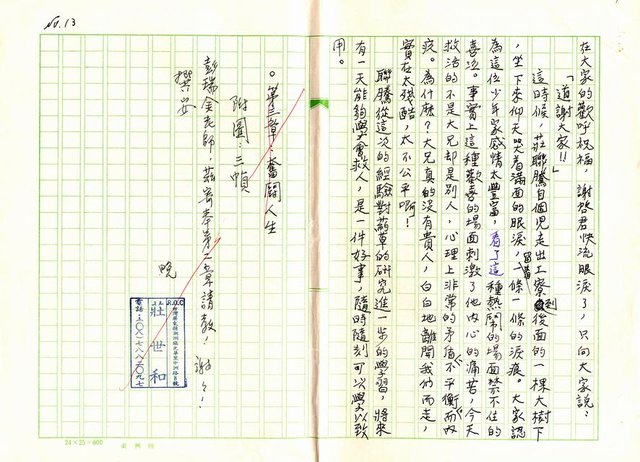 No. 13
在大家的歡呼祝福，謝啓君快流眼淚了，只向大家說：
「道謝大家!!」
這時候，莊聯騰自個兒走出工寮到後面的一棵大樹下
，坐下來仰天哭着滿面的眼淚，留着一條一條的淚痕。大家認
為這位少年家感情太豐富，看了這種熱鬧的場面禁不住的
喜泣。事實上這種歡喜的場面刺激了他內心的痛苦，今天
救活的不是大兄却是別人，心理上非常的矛盾不平衡而內
疚。為什麽？大兄真的沒有貴人，白白地離開我們而走，
實在太殘酷，太不公平啊！
聯騰從這次的經驗對藥草的研究進一步的學習，將來
有一天能夠學會救人，是一件好事，隨時隨刻可以學以致
用。
。第三章：奮鬪人生
附圖：三幀
彭瑞金老師，茲寄奉第二章請教！謝々！
撰安
晚
R.O.C
莊世和
24×25=600